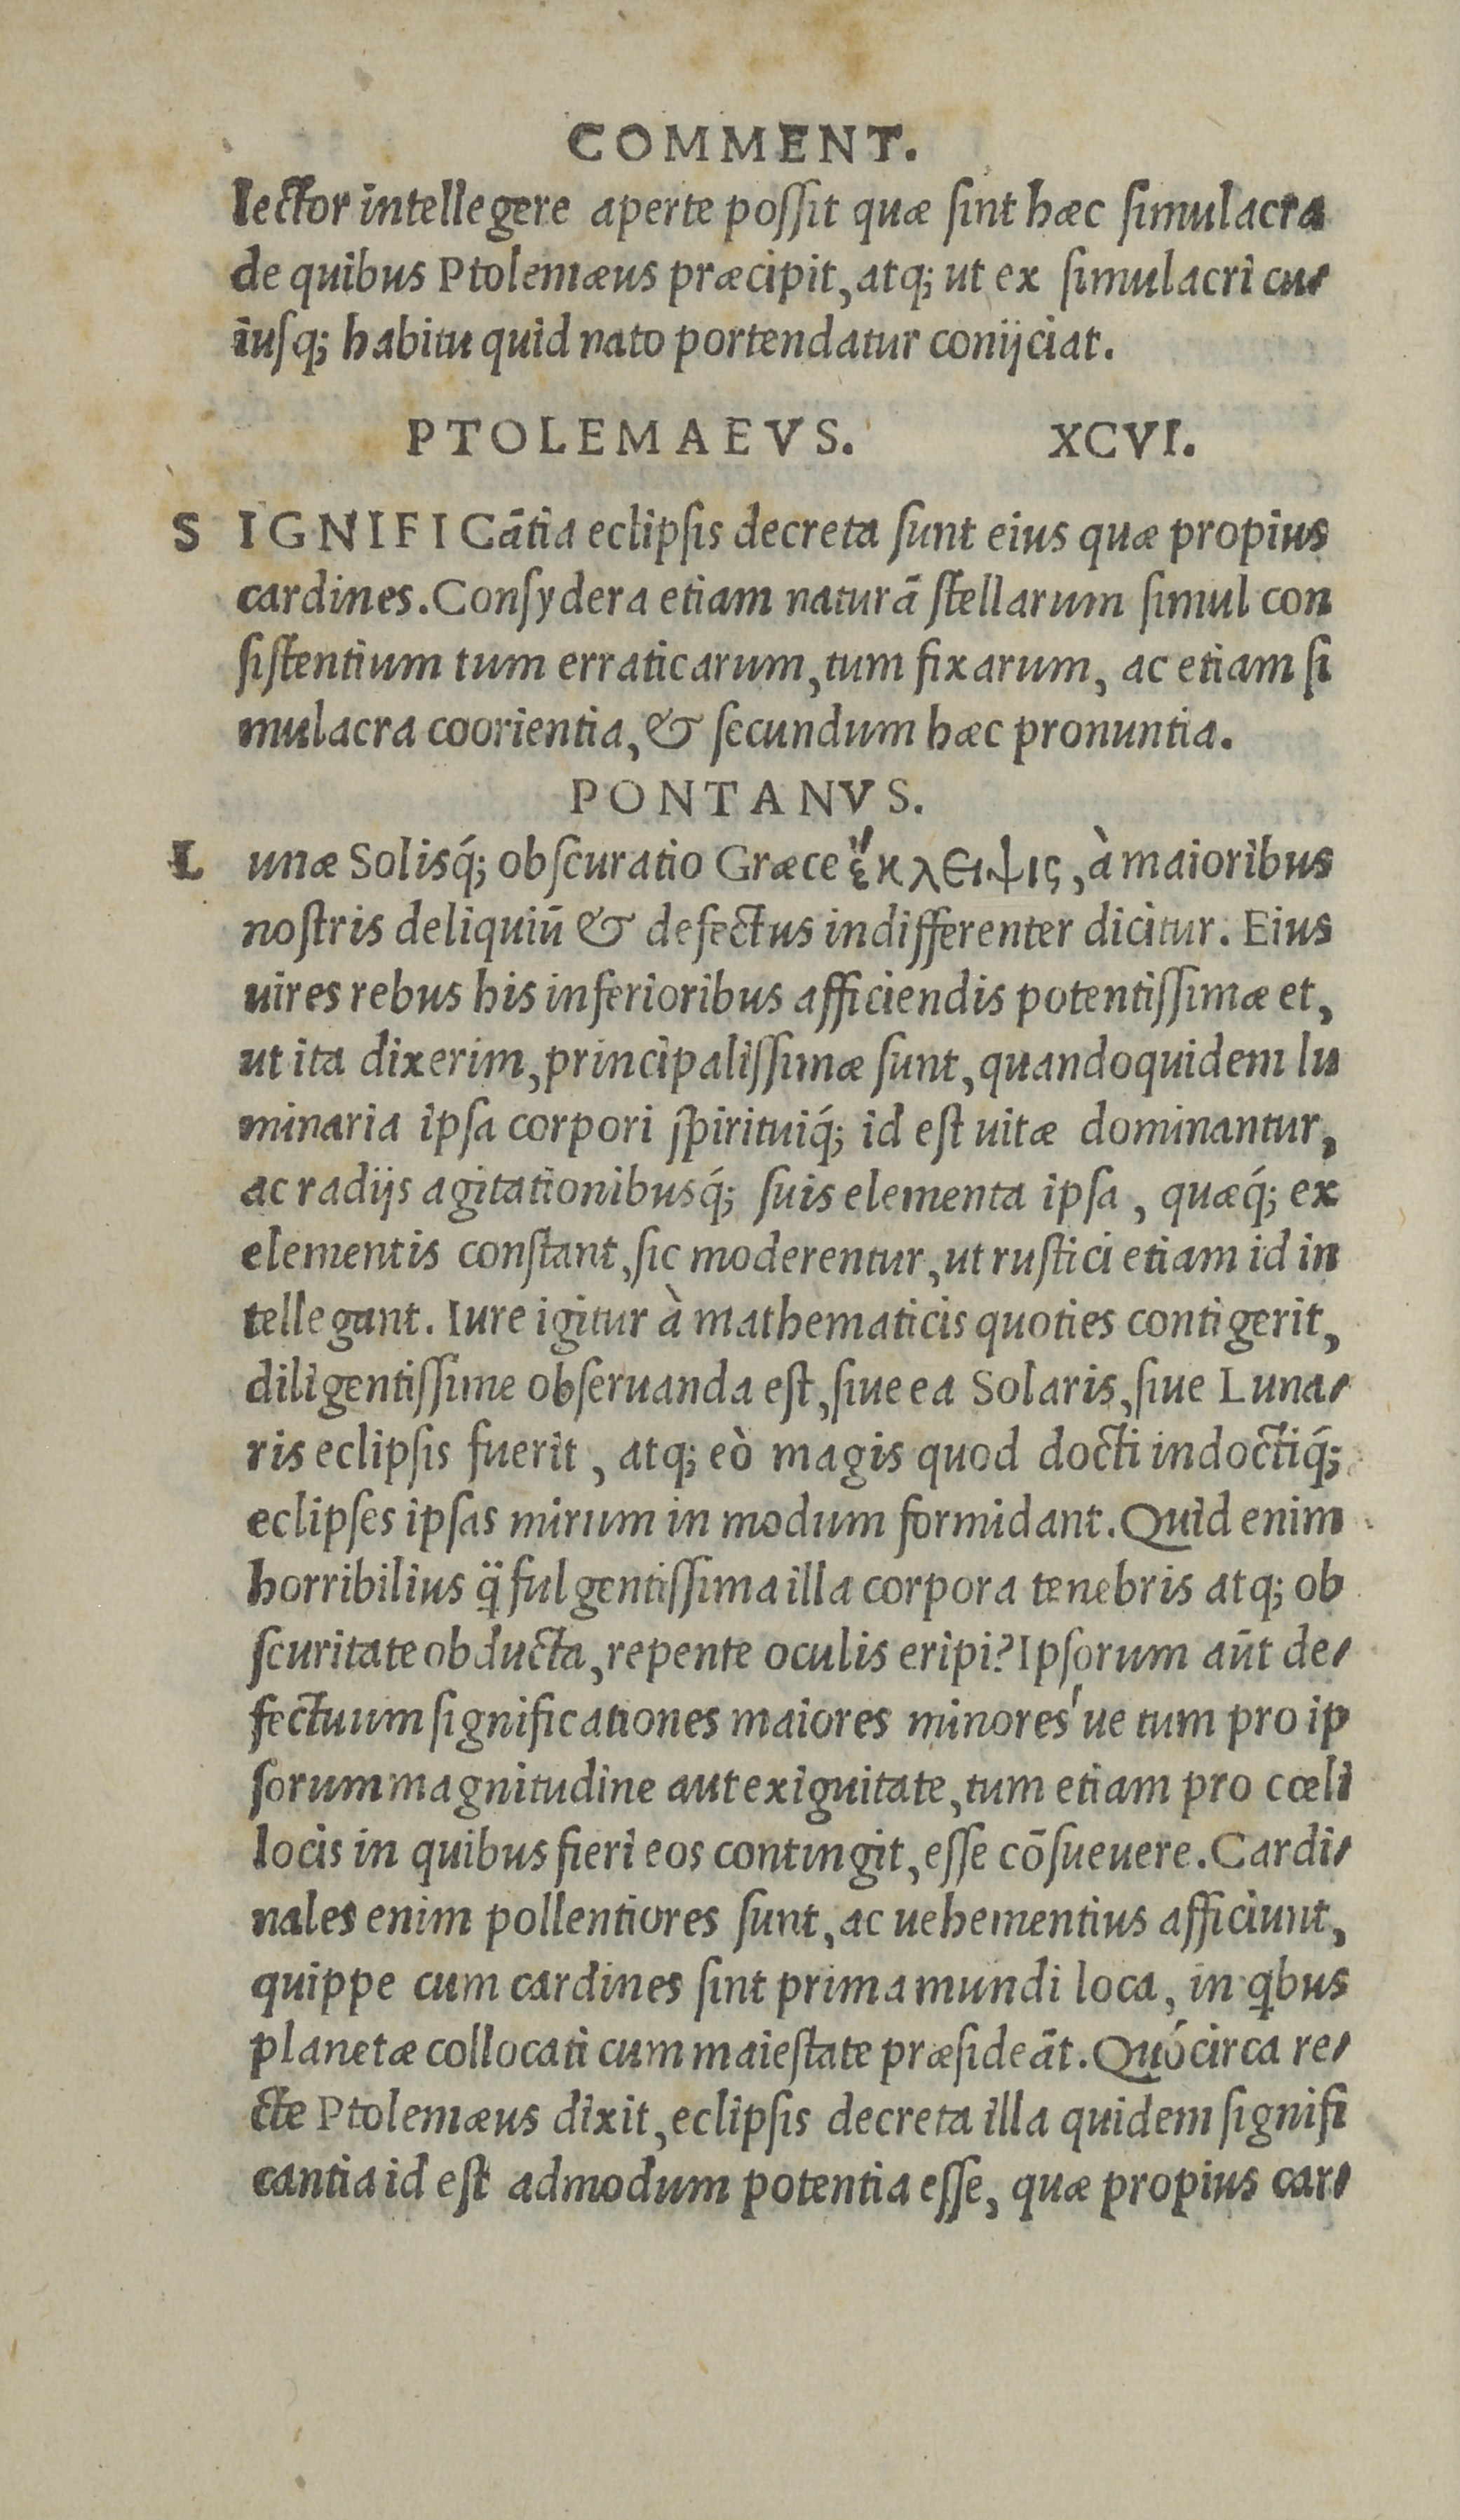 COMMENT.
lector intellegere aperte possit quæ sint hæc simulacra
de quibus Ptolemæus præcipit, atq; ut ex simulacri cu-
iusq; habitu quid nato portendatur conijciat.
PTOLEMAEVS. XCVI.
S IGNIFICãtia eclipsis decreta sunt eius quæ propius
cardines. Consydera etiam naturã stellarum simul con
sistentium tum erraticarum, tum fixarum, ac etiam si
mulacra coorientia, & secundum hæc pronuntia.
PONTANVS.
L unæ Solisq́; obscuratio Græce ἔκλειψις, à maioribus
nostris deliquiũ & defectus indifferenter dicitur. Eius
uires rebus his inferioribus afficiendis potentissimæ et,
ut ita dixerim, principalissimæ sunt, quandoquidem lu
minaria ipsa corpori spirituiq́; id est uitæ dominantur,
ac radijs agitationibusq́; suis elementa ipsa, quæq́; ex
elementis constant, sic moderentur, ut rustici etiam id in
tellegant. Iure igitur à mathematicis quoties contigerit,
diligentissime obseruanda est, siue ea Solaris, siue Luna-
ris eclipsis fuerit, atq; eò magis quod docti indoctiq́;
eclipses ipsas mirum in modum formidant. Quid enim
horribilius q̈ fulgentissima illa corpora tenebris atq; ob
scuritate obducta, repente oculis eripi? Ipsorum aũt de-
fectuum significationes maiores minores'ue tum pro ip
sorum magnitudine aut exiguitate, tum etiam pro cœli
locis in quibus fieri eos contingit, esse cõsueuere. Cardi-
nales enim pollentiores sunt, ac uehementius afficiunt,
quippe cum cardines sint prima mundi loca, in qbus
planetæ collocati cum maiestate præsideãt. Quócirca re-
cte Ptolemæus dixit, eclipsis decreta illa quidem signifi
cantia id est admodum potentia esse, quæ propius car-